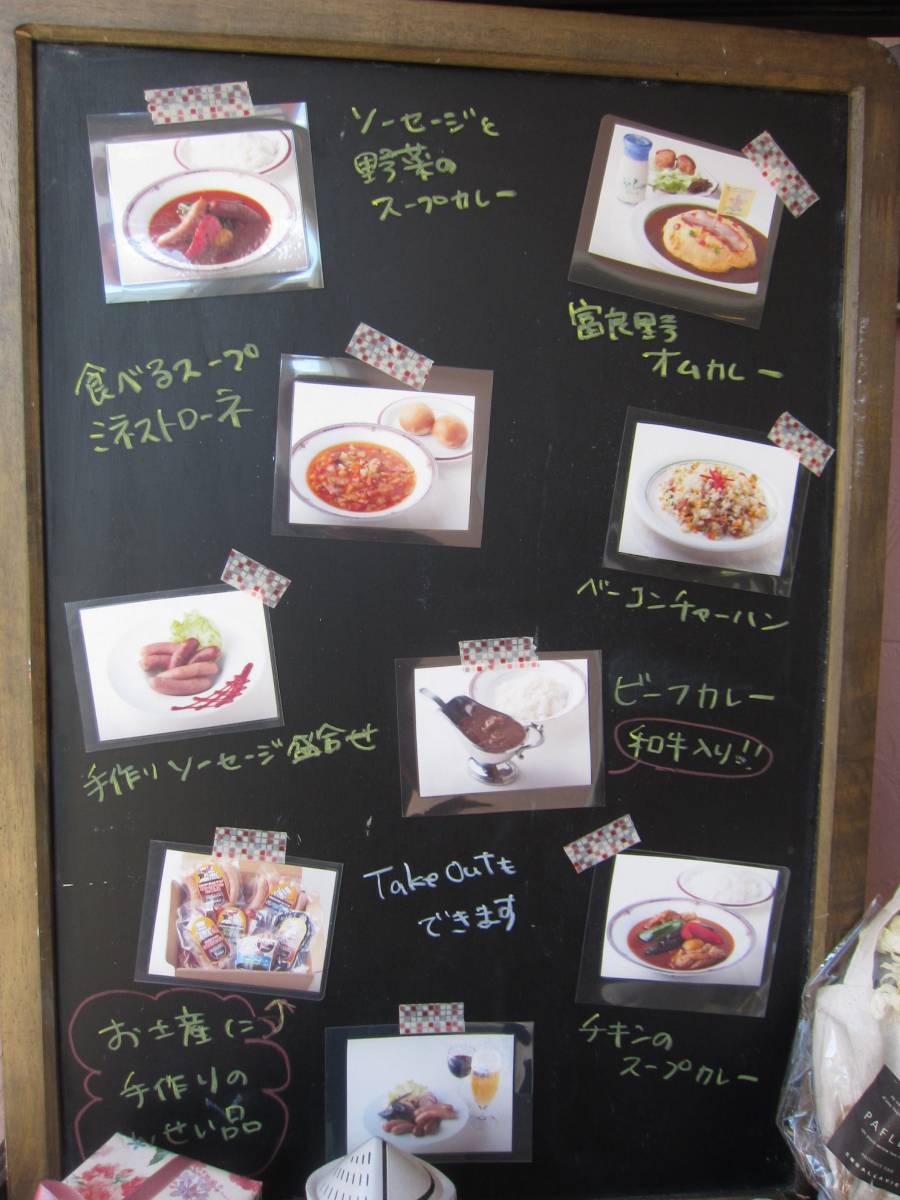 ソーセージと
野菜の
スープカレー
富良野
オムカレー
食べるスープ
ミネストローネ
ベーコンチャーハン
手作りソーセージ盛合せ
ビーフカレー
和牛入り!!
Take Outも
できます
チキンの
スープカレー
お土産に
手作りの
んせい品
PAFL